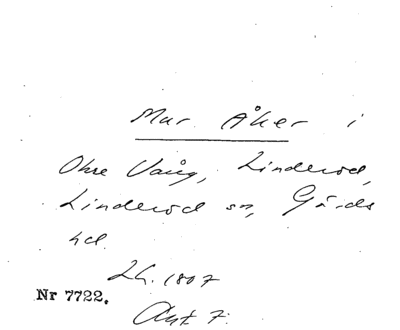 Mur Åker i
Ohre Vång, Linderöd,
Linderöd sn, Gärds
hd.
Lh. 1807
Nr 7722.
Akt 7.